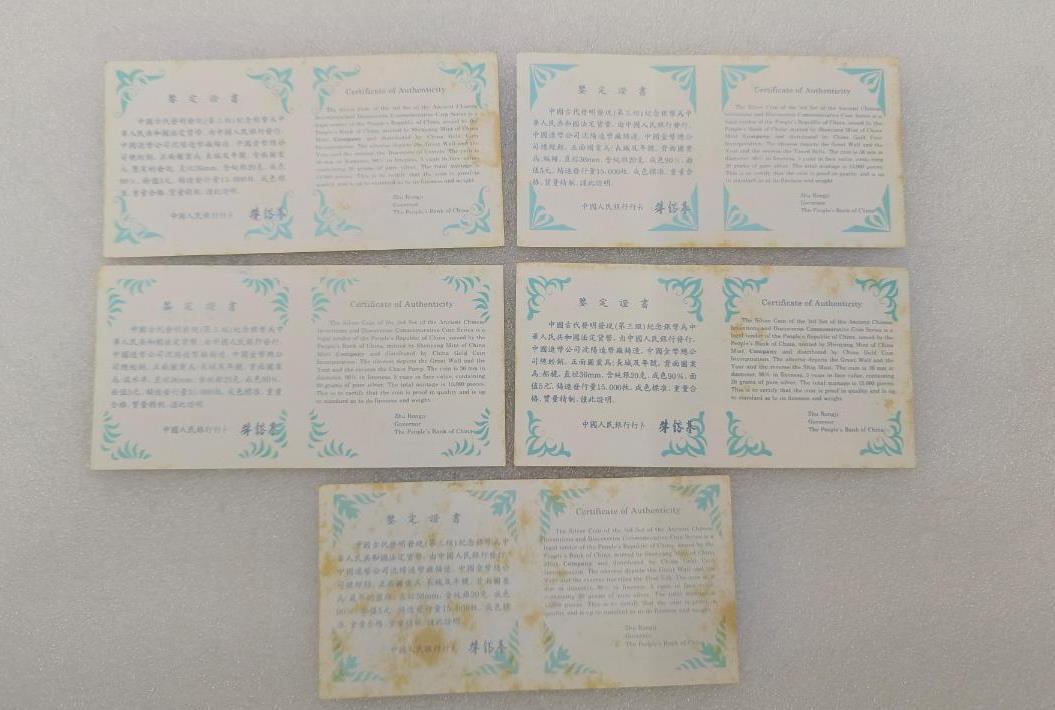 鉴定證書
中國古代發明發現(第三組)紀念銀幣爲中
華人民共和國法定貨幣，由中國人民銀行發行，
中國造幣公司沈陽造幣廠鑄造，中國金幣總公
司總經銷。正面圖案爲：長城及年號，背面圖案
直徑36mm，含純銀20克，成色
90%，面值5元，鑄造發行量15.000枚，成色標
準，重量合格，質量精制，謹此證明。
中國人民銀行行长 朱镕基
Certificate of Authenticity
The Silver Coin of the 3rd Set of the Ancient Chinese
Inventions and Discoveries Commemorative Coin Series is a
legal tender of the People's Republic of China, issued by the
People's Bank of China, minted by Shenyang Mint of China
Mint Company and distributed by China Gold Coin
Incorporation. The obverse depicts the Great Wall and the
Year and the reverse
diameter, 90% in fineness, 5 yuan in face value, containing
20 grams of pure silver. The total mintage is 15,000 pieces.
This is to certify that the coin is proof in quality and is up
to standard as to its fineness and weight.
Zhu Rongji
Governor
The People's Bank of China
鉴定證書
中國古代發明發現(第三組)紀念銀幣爲中
華人民共和國法定貨幣，由中國人民銀行發行，
中國造幣公司沈陽造幣廠鑄造，中國金幣總公
司總經銷。正面圖案爲：長城及年號，背面圖案
直徑36mm，含純銀20克，成色90%，面
值5元，鑄造發行量15.000枚，成色標準，重量合
格，質量精制，謹此證明。
中國人民銀行行长 朱镕基
Certificate of Authenticity
The Silver Coin of the 3rd Set of the Ancient Chinese
Inventions and Discoveries Commemorative Coin Series is a
legal tender of the People's Republic of China, issued by the
People's Bank of China, minted by Shenyang Mint of China
Mint Company and distributed by China Gold Coin
Incorporation. The obverse depicts the Great Wall and the
Year and the reverse the The coin is 36 mm in
diameter, 90% in fineness, 5 yuan in face value, containing
20 grams of pure silver. The total mintage is 15,000 pieces.
This is to certify that the coin is proof in quality and is up
to standard as to its fineness and weight.
Zhu Rongji
Governor
The People's Bank of China
鉴定證書
中國古代發明發現(第三組)紀念銀幣爲中
華人民共和國法定貨幣，由中國人民銀行發行，
中國造幣公司沈陽造幣廠鑄造，中國金幣總公
司總經銷，正面圖案爲：長城及年號，背面圖案
直徑36mm，含純銀20克，成色90%，
面值5元，鑄造發行量15.000枚，成色標準，重量
合格，質量精制，謹此證明。
中國人民銀行行长 朱镕基
Certificate of Authenticity
The Silver Coin of the 3rd Set of the Ancient Chinese
Inventions and Discoveries Commemorative Coin Series is a
legal tender of the People's Republic of China, issued by the
People's Bank of China, minted by Shenyang Mint of China
Mint Company and distributed by China Gold Coin
Incorporation. The obverse depicts the Great Wall and the
Year and the reverse the Chain Pump. The coin is 36 mm in
diameter, 90% in fineness, 5 yuan in face value, containing
20 grams of pure silver. The total mintage is 15,000 pieces.
This is to certify that the coin is proof in quality and is up
to standard as to its fineness and weight.
Zhu Rongji
Governor
The People's Bank of China
鉴定證書
中國古代發明發現(第三組)紀念銀幣爲中
華人民共和國法定貨幣，由中國人民銀行發行，
中國造幣公司沈陽造幣廠鑄造，中國金幣總公
司總經銷，正面圖案爲：長城及年號，背面圖案
爲：船舵，直徑36mm，含純銀20克，成色90%，面
值5元，鑄造發行量15.000枚，成色標準，重量合
格，質量精制，謹此證明。
中國人民銀行行长 朱镕基
Certificate of Authenticity
The Silver Coin of the 3rd Set of the Ancient Chinese
Inventions and Discoveries Commemorative Coin Series is a
legal tender of the People's Republic of China, issued by the
People's Bank of China, minted by Shenyang Mint of China
Mint Company and distributed by China Gold Coin
Incorporation. The obverse depicts the Great Wall and the
Year and the reverse the Ship The coin is 36 mm in
diameter, 90% in fineness, 5 yuan in face value, containing
20 grams of pure silver. The total mintage is 15,000 pieces.
This is to certify that the coin is proof in quality and is up
to standard as to its fineness and weight.
Zhu Rongji
Governor
The People's Bank of China
鉴定證書
中國古代發明發現(第三組)紀念銀幣爲中
華人民共和國法定貨幣，由中國人民銀行發行，
中國造幣公司沈陽造幣廠鑄造，中國金幣總公
司總經銷，正面圖案爲：長城及年號，背面圖案
直徑36mm，含純銀20克，成色
90%，面值5元，鑄造發行量15.000枚，成色標
準，重量合格，質量精制，謹此證明。
中國人民銀行行长 朱镕基
Certificate of Authenticity
The Silver Coin of the 3rd Set of the Ancient Chinese
Inventions and Discoveries Commemorative Coin Series is a
legal tender of the People's Republic of China, issued by the
People's Bank of China, minted by Shenyang Mint of China
Mint Company and distributed by China Gold Coin
Incorporation. The obverse depicts the Great Wall and the
Year and the reverse
diameter, 90% in fineness, 5 yuan in face value,
containing 20 grams of pure silver. The total mintage is
15,000 pieces. This is to certify that the coin is proof in
quality and is up to standard as to its fineness and weight.
Zhu Rongji
Governor
The People's Bank of China